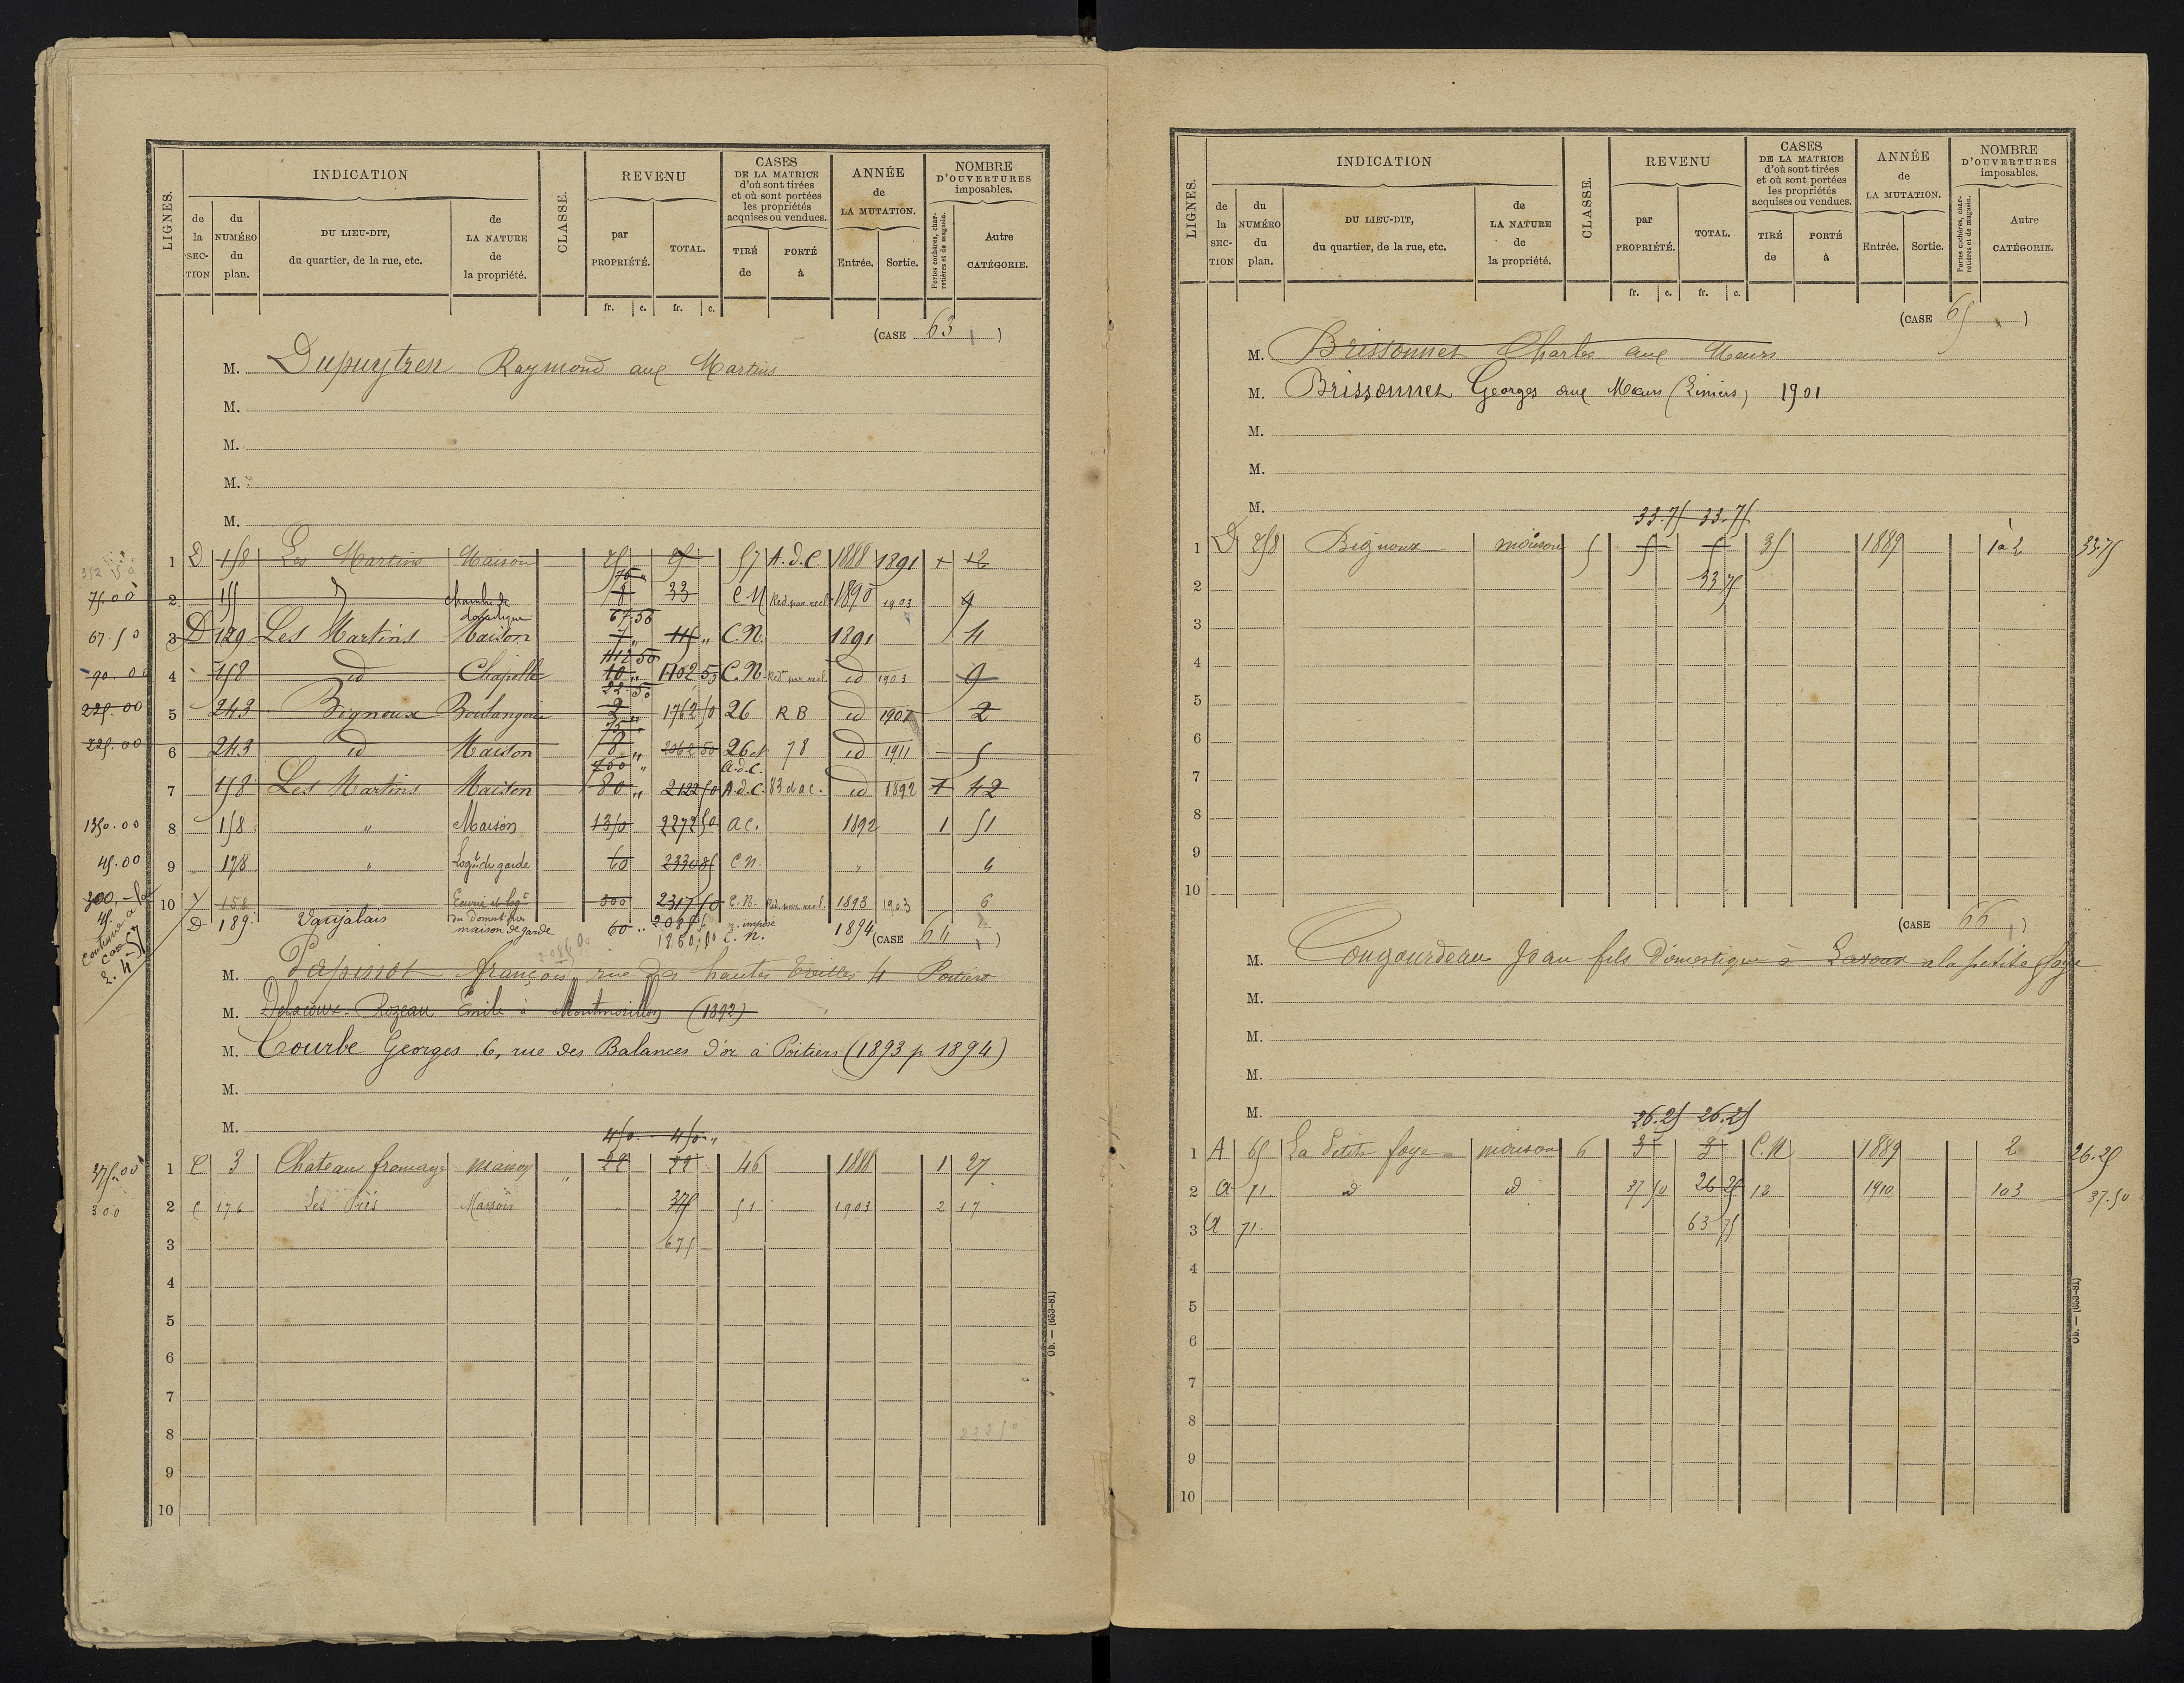 LIGNES. INDICATION CLASSE. REVENU CASES DE LA MATRICE d'où sont tirées et où sont portées les propriétés acquises ou vendues. ANNÉE de LA MUTATION. NOMBRE D'OUVERTURES imposables.
de la SECTION du NUMÉRO du plan. DU LIEU-DIT, du quartier, de la rue, etc. de LA NATURE de la propriété. par PROPRIÉTÉ. TOTAL. TIRÉ de PORTÉ à Entrée. Sortie. Portes cochères, charretières et de magasin. Autre CATÉGORIE.
fr. c. fr. c.
(CASE 63)
M. Dupuytren Raymond aux Martins
M.
M.
M.
M.
1 D 158 Les Martins Maison 57 A.d.C. 1888 1891 + +2
75.00 2 155 chambre de 75 8 33 C N Réd. par recl. 1890 1903 4
67.50 3 D 129 Les Martins Maison 67.50 7 C.N. 1891 4
90.00 4 258 id Chapelle 112 50 10 1102 50 C.N. Réd. par recl. id 1903 9
225.00 5 243 Bignoux Boulangerie 22.50 2 1762 50 26 R B id 1902 2
225.00 6 243 id Maison 75 8 2062 50 26 et a.d.C. 78 id 1911 5
7 158 Les Martins Maison 80 2122 50 A.d.C. 83 d a c. id 1892 1 42
1350.00 8 158 " Maison 1350 2272 50 a c. 1892 1 51
45.00 9 178 " Logt du garde 60 C N. " 4
300 10 158 Ecurie et logt du domestique 300 2317 50 C.N. Réd. par recl. 1893 1903 6
45. D 189. maison de garde 60 n. imposé C. N. 1894
continue à case 57
(CASE 64)
M. François rue des hautes treilles 4 Poitiers
M. Delacoux-Rozeau Emile à Montmorillon (1892)
M. Courbe Georges 6, rue des Balances d'or à Poitiers (1893 p 1894)
M.
M.
450. 450
375.00 1 C 3 Château fromage maison 46 1888 1 27
300 2 C 176 Les Maison " 375 51 1903 2 17
3 675
4
5
6
7
8
9
10
Ob. — (653-81)
LIGNES. INDICATION CLASSE. REVENU CASES DE LA MATRICE d'où sont tirées et où sont portées les propriétés acquises ou vendues. ANNÉE de LA MUTATION. NOMBRE D'OUVERTURES imposables.
de la SECTION du NUMÉRO du plan. DU LIEU-DIT, du quartier, de la rue, etc. de LA NATURE de la propriété. par PROPRIÉTÉ. TOTAL. TIRÉ de PORTÉ à Entrée. Sortie. Portes cochères, charretières et de magasin. Autre CATÉGORIE.
fr. c. fr. c.
(CASE 65)
M. Brissonnet Charles aux Mœurs
M. Brissonnet Georges aux Mœurs (Liniers) 1901
M.
M.
M.
33.75 33.75
1 D 258 Bignoux maison 5 5 5 35 1889 1 à 2 33.75
2 33 75
3
4
5
6
7
8
9
10
(CASE 66)
M. Cougourdeau Jean fils domestique à Lavoux a la petite foye
M.
M.
M.
M.
26.25 26.25
1 A 65 La Petite foye maison 6 3 3 C.N 1889 2 26.25
2 a 71. id id 37 50 26 25 12 1910 1 à 3 37.50
3 a 71. 63 75
4
5
6
7
8
9
10
Ob. — (653-81)